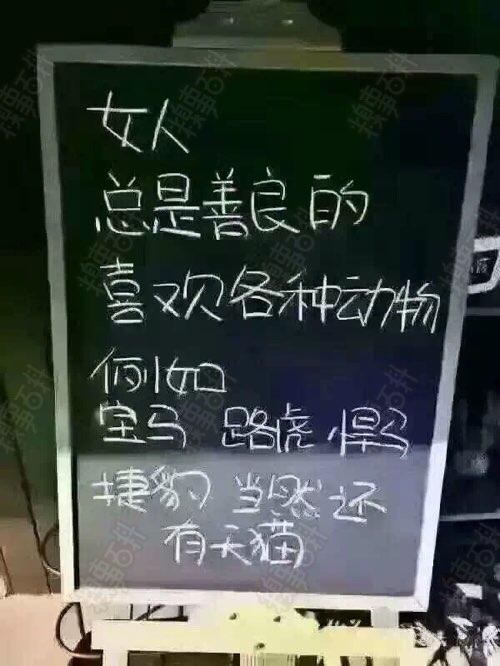 女人
总是善良的
喜欢各种动物
例如
宝马 路虎,悍马
捷豹 当然还
有天猫